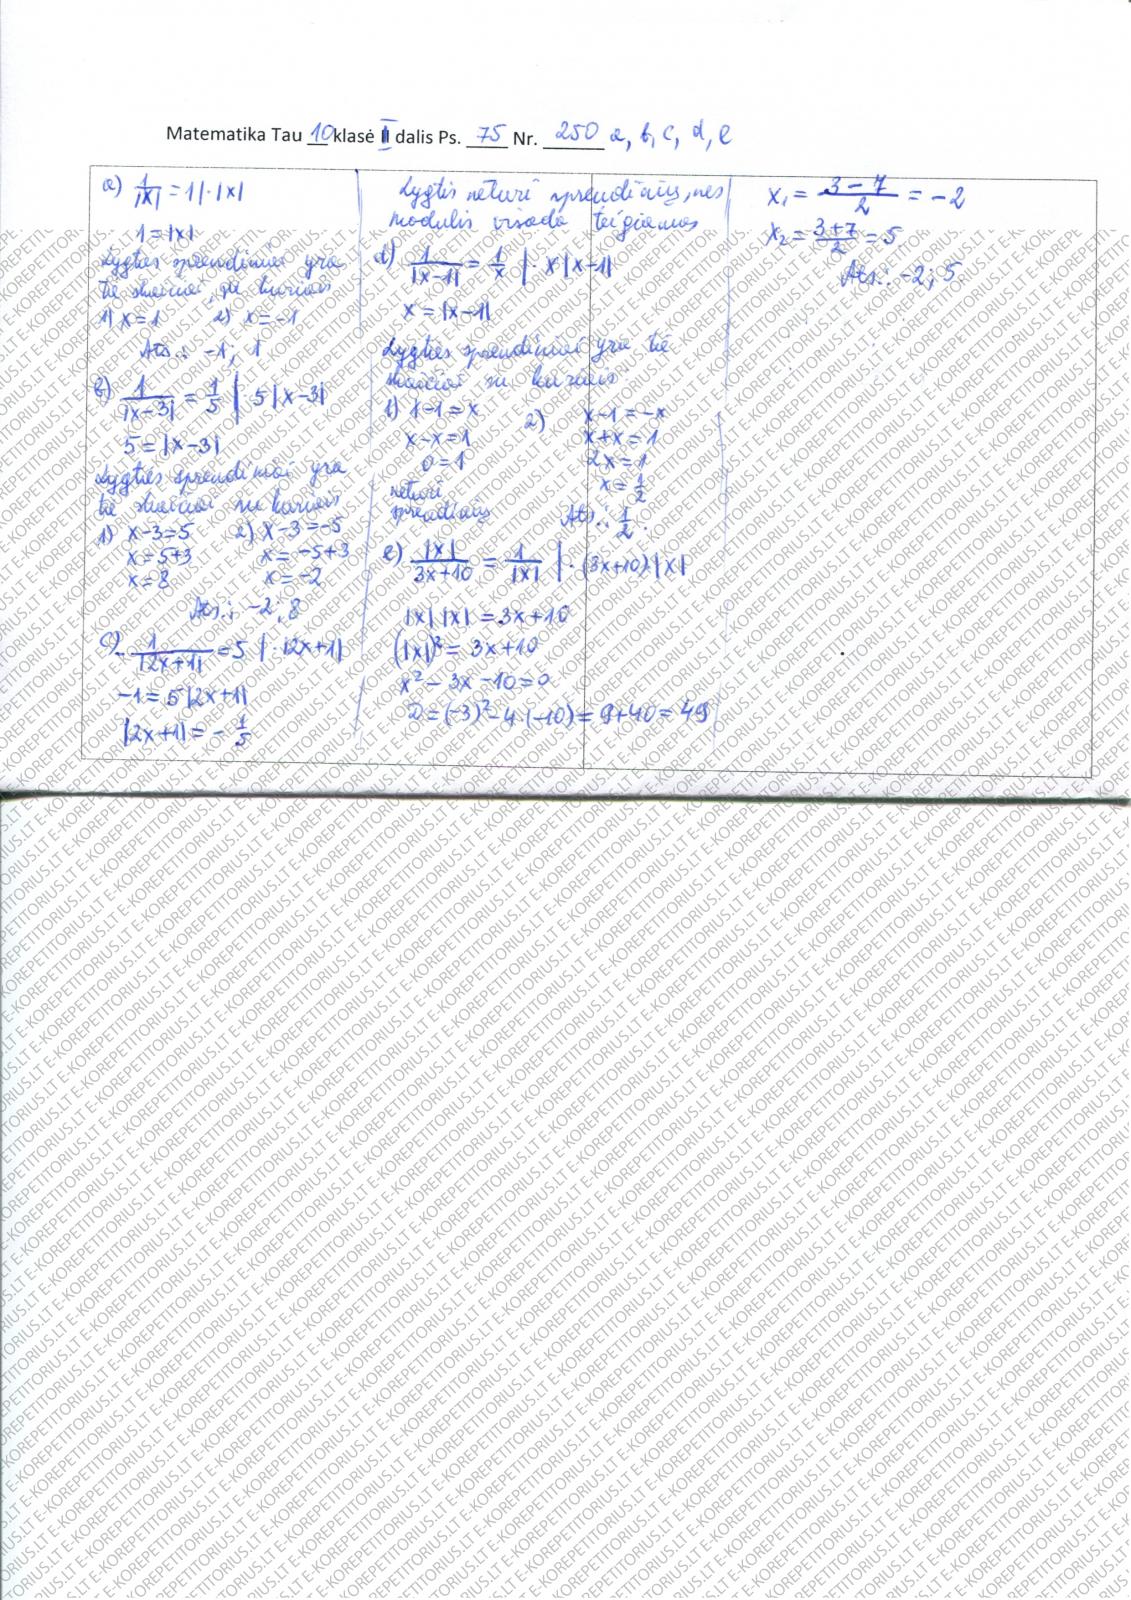 Matematika Tau 10 klasė II dalis Ps. 75 Nr. 250 a, b, c, d, e
a) 1/|x| = 1 | · |x|
1 = |x|
Lygties sprendiniai yra
tie skaičiai, su kuriais
1) x = 1 2) x = -1
Ats.: -1; 1
b) 1/|x-3| = 1/5 | · 5|x-3|
5 = |x-3|
Lygties sprendiniai yra
tie skaičiai su kuriais
1) x-3=5 2) x-3=-5
x=5+3 x=-5+3
x=8 x=-2
Ats.: -2, 8
c) -1/|2x+1| = 5 | · |2x+1|
-1 = 5|2x+1|
|2x+1| = -1/5
Lygtis neturi sprendinių, nes
modulis visada teigiamas
d) 1/|x-1| = 1/x | · x|x-1|
x = |x-1|
Lygties sprendiniai yra tie
skaičiai su kuriais
1) x-1=x 2) x-1=-x
x-x=1 x+x=1
0=1 2x=1
neturi x=1/2
sprendinių Ats.: 1/2.
e) |x|/3x+10 = 1/|x| | · (3x+10)·|x|
|x| |x| = 3x+10
(|x|)² = 3x+10
x² - 3x - 10 = 0
D = (-3)² - 4·(-10) = 9+40 = 49
x₁ = 3-7/2 = -2
x₂ = 3+7/2 = 5
Ats.: -2; 5.
E-KOREPETITORIUS.LT